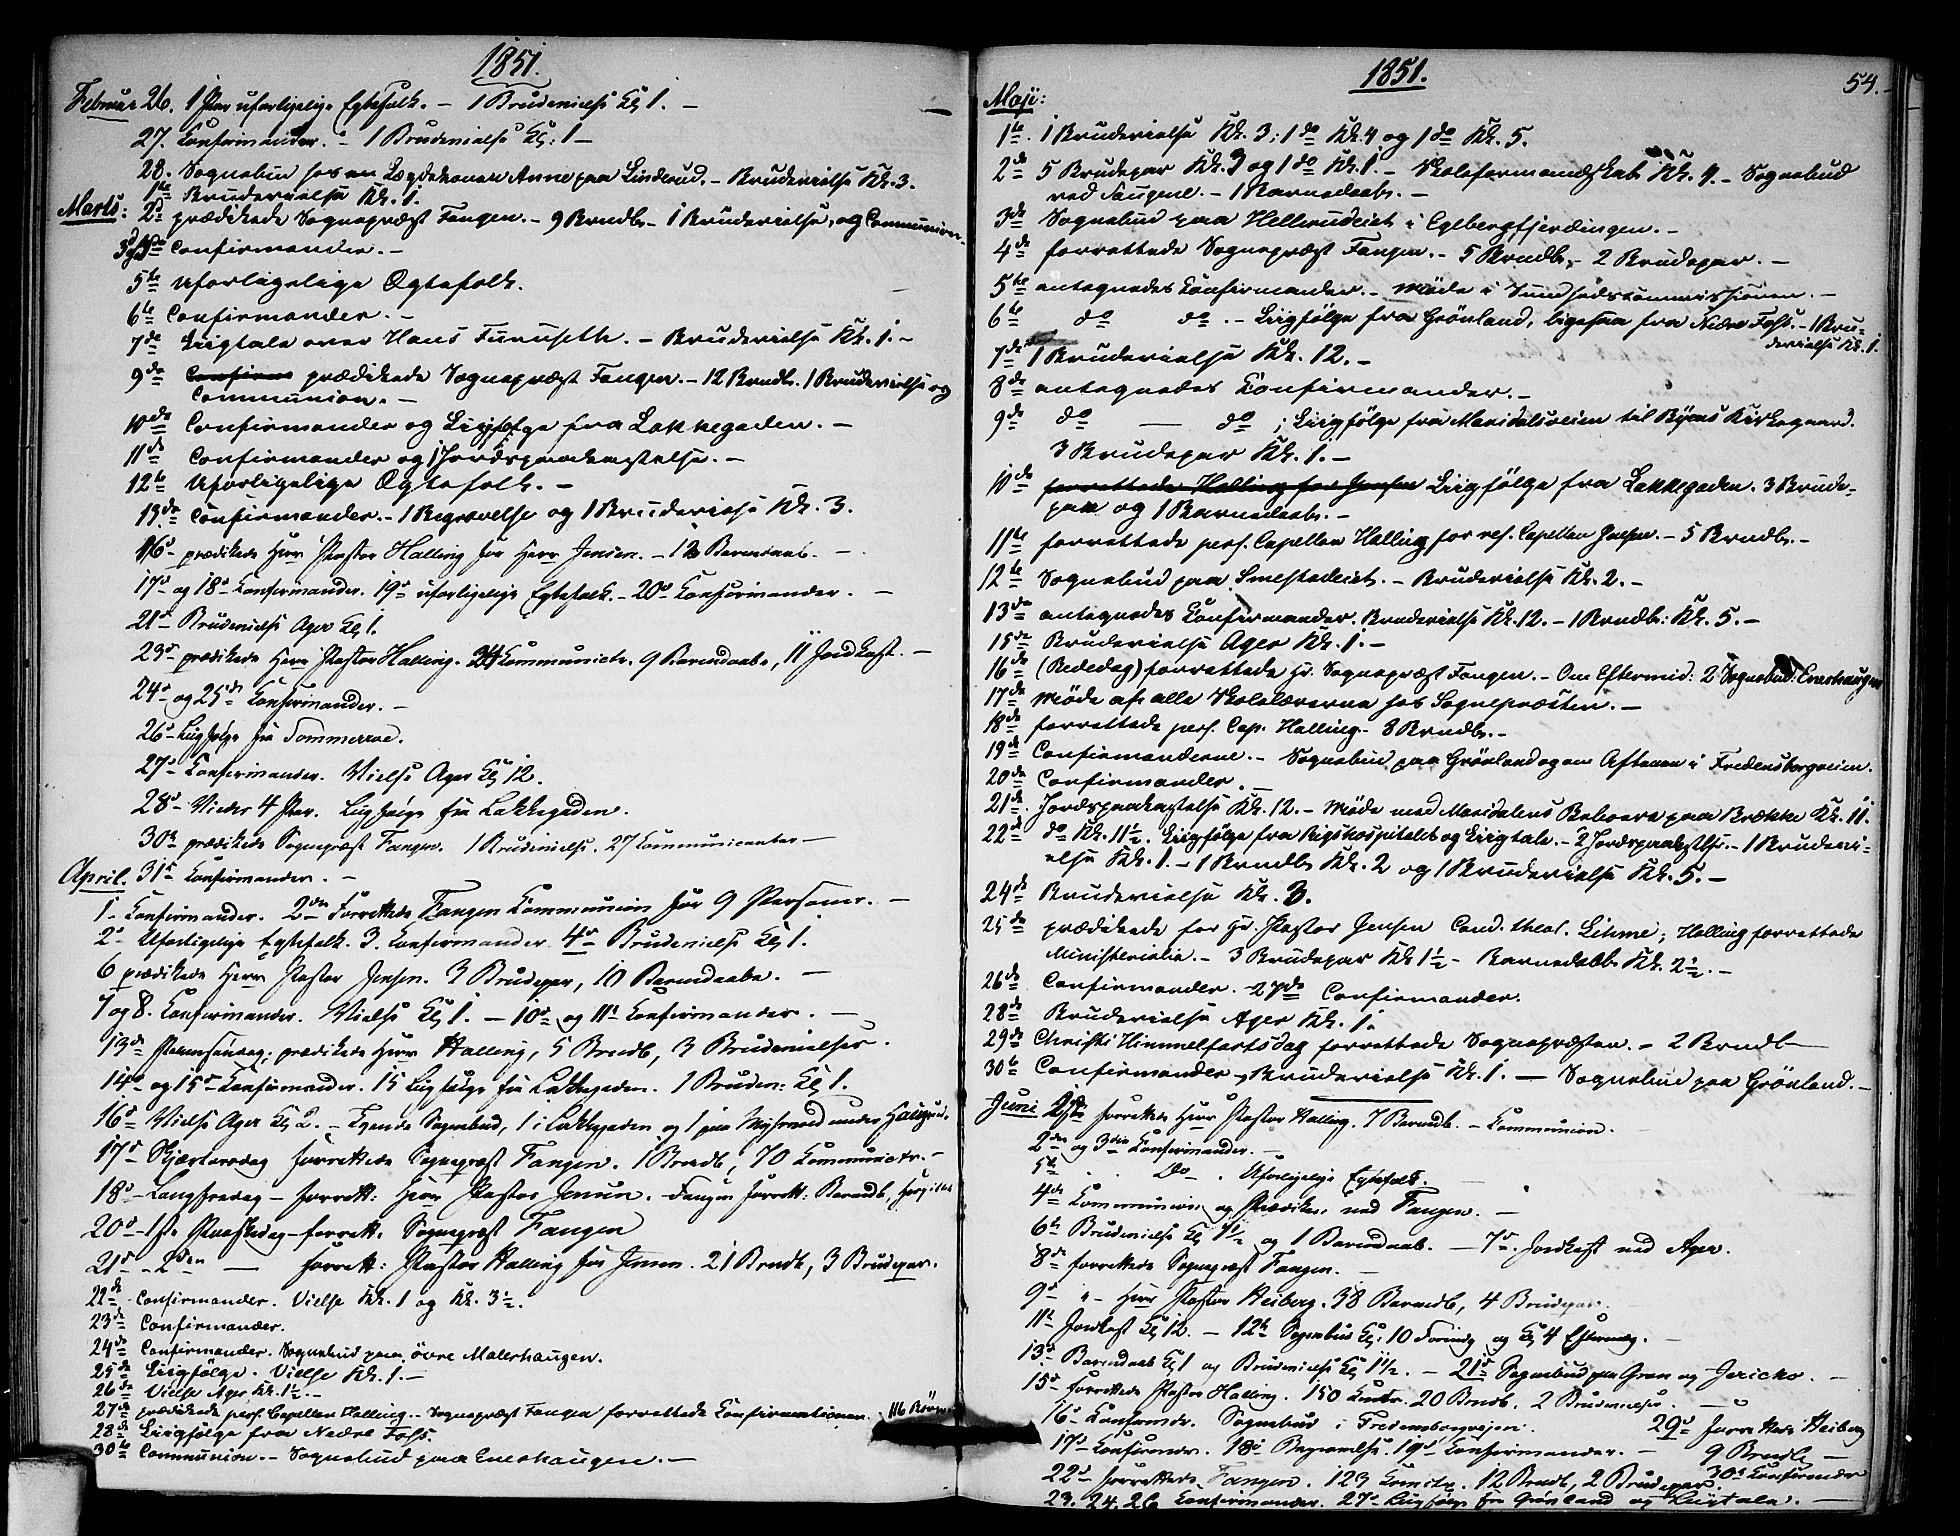 1851.
Februar 26. 1 Par uforligelige Egtefolk. – 1 Brudevielse Kl 1. –
27. Confirmander. – 1 Brudevielse Kl: 1 –
28. Sognebud hos en Lægdekone Anne paa Linderud. – Brudevielse Kl. 3.
Marts: 1ste Brudevielse Kl. 1.
2d prædikede Sognepræst Fangen. – 9 Brndb. – 1 Brudevielse, og Communion.
Confirmander. –
5te Uforligelige Egtefolk.
6te Confirmander. –
7de Liigtale over Hans Furuseth. – Brudevielse Kl. 1. –
9de prædikede Sognepræst Fangen. – 12 Brndb. 1 Brudevielse og
Communion. –
10de Confirmander og Liigfølge fra Lakkegaden. –
11te Confirmander og 1 Jordspaakastelse. –
12te Uforligelige Egtefolk. –
13de Confirmander. – 1 Begravelse og 1 Brudevielse Kl. 3.
16d prædikede Herr Pastor Halling for Herr Jensen. – 12 Barnedaab. –
17d og 18d Konfirmander. 19d uforligelige Egtefolk. – 20d Konfirmander. –
21d Brudevielse Ager Kl 1.
23d prædikede Herr Pastor Halling. 34 Kommunictr. 9 Barndaabe, 11 Jordkast. –
24d og 25de Konfirmander. –
26d Liigfølge fra Tommerroe.
27d Konfirmander. Vielse Ager Kl 12.
28d Viedes 4 Par. Liigfølge fra Lakkegaden.
30d prædikede Sognepræst Fangen. 1 Brudevielse. 27 Kommunicanter –
April. 31d Konfirmander. –
1. Konfirmander. 2den Forrettede Fangen Kommunion for 9 Personer. –
2d Uforligelige Egtefolk. 3. Konfirmander. 4d Brudevielse Kl 1.
6 prædikede Herr Pastor Jensen. 3 Brudepar, 10 Barndaabe. –
7 og 8. Konfirmander. Vielse Kl 1. – 10d og 11t Konfirmander. –
13de Palmesøndag; prædikede Herr Halling, 5 Brndb, 3 Brudevielser.
14d og 15d Konfirmander. 15 Liigfølge fra Lakkegaden. 1 Brudev: Kl 1.
16d Vielse Ager Kl 2. – Sognebud, 1 i Lakkegaden og 1 paa
17d Skjærtorsdag forrettede Sognepræst Fangen. 1 Brndb, 70 Kommunictr. –
18d Langfredag – forrett: Herr Pastor Jensen. Fangen forrett: Barndb,
20d 1ste Paaskedag – forrett. Sognepræst Fangen
21d – 2den — forrett: Pastor Halling for Jensen. 21 Brndb, 3 Brudepar.
22de Confirmander. Vielse Kl. 1 og Kl. 3½.
23de Confirmander.
24de Confirmander. Sognebud paa øvre Malerhaugen.
25de Liigfølge. Vielse Kl. 1. –
26de Vielse Ager Kl. 1½. –
27de prædikede pers. Capellan Halling. – Sognepræst Fangen forrettede Confirmationen. 116 Børn
28de Liigfølge fra Nedre Foss.
30te Communion. – Sognebud paa Enerhaugen. –
1851.
54.
Maji:
1ste. 1 Brudevielse Kl. 3; 1 do Kl. 4 og 1 do Kl. 5.
2de 5 Brudepar Kl. 3 og 1 do Kl. 1. – Skoleformandskab Kl. 4. – Sognebud
ved Saugene. – 1 Barnedaab. –
3de Sognebud paa Hellerudeiet i Egebergfjerdingen. –
4de forrettede Sognepræst Fangen. – 5 Brndb, – 2 Brudepar. –
5te antegnedes Confirmander. – Møde i Sundhedscommissionen. –
6te do do. – Liigfølge fra Grønland, ligesaa fra Nedre Foss. – 1 Bru-
devielse Kl. 1.
7de 1 Brudevielse Kl. 12. –
8de antegnedes Confirmander. –
9de do — do; Liigfølge fra Maridalsveien til Byens Kirkegaard.
3 Brudepar Kl. 1. –
10de forrettede Halling for Jensen Liigfølge fra Lakkegaden. 3 Brude-
par og 1 Barnedaab. –
11te forrettede pers. Capellan Halling for res. Capellan Jensen. – 5 Brndb. –
12te Sognebud paa Smestadeiet. – Brudevielse Kl. 2. –
13de antegnedes Confirmander. Brudevielse Kl. 12. – 1 Brndb: Kl. 5. –
15de Brudevielse Ager Kl. 1. –
16de (Bededag) forrettede Hr. Sognepræst Fangen. – Om Eftermid: 2 Sognebud: Enerhaugen
17de Møde af alle Skolelærerne hos Sognepræsten. –
18de forrettede pers. Cap. Halling. – 8 Brndb. –
19de Confirmanderne. – Sognebud paa Grønland og om Aftenen i Fredensborgveien.
20de Confirmander. –
21de Jordspaakastelse Kl. 12. – Møde med Maridalens Beboere paa Brække Kl. 11.
22de do Kl. 11½. Liigfølge fra Rigshospitalet og Liigtale. – 2 Jordspaakastlse. – 1 Brudevi-
else Kl. 1. – 1 Brndb Kl. 2 og 1 Brudevielse Kl. 5. –
24de Brudevielse Kl. 3.
25de prædikede for Hr. Pastor Jensen Cand. theol. Lihme; Halling forrettede
Ministerialia. – 3 Brudepar Kl 1½ – Barnedaab Kl. 2½. –
26de Confirmander. – 27de Confirmander.
28de Brudevielse Ager Kl. 1.
29de Christi Himmelfartsdag forrettede Sognepræsten. – 2 Brndb –
30te Confirmander – Brudevielse Kl. 1. — Sognebud paa Grønland. –
Juni forrettede Herr Pastor Halling. 7 Barndb. – Kommunion.
2den og 3die Konfirmander. –
5te Do . Uforligelige Egtefolk. –
4de Kommunion og Prædiken ved Fangen. –
6te Brudevielse Kl 1½ og 1 Barndaab. — 7d. Jordkast ved Ager.
8de forrettede Sognepræst Fangen. –
9d " – Herr Pastor Heiberg. 38 Barndb, 4 Brudepar.
11te Jordkast Kl 12. – 12te Sognebud Kl: 10 Formidg og Kl 4 Efterm. –
13d Barndaab Kl 1 og Brudevielse Kl 1½. – 21d Sognebud paa Gran og Jericho. –
15d forrettede Pastor Halling. 150 Kmtr. 20 Brndb. 2 Brudevielse. –
16d Konfirmdr. Sognebud i Fredensborgveien. 29d forrettede Heiberg
17d Konfirmndr. 18d Begravelse. 19d Konfirmander. – 9 Brndb –
22d forrettede Fangen. 123 Komctr. 12 Brndb, 2 Brudepar. 30d Konfirmdr
23. 24. 26 Konfirmander. 27d Liigfølge fra Grønland og Liigtale. –